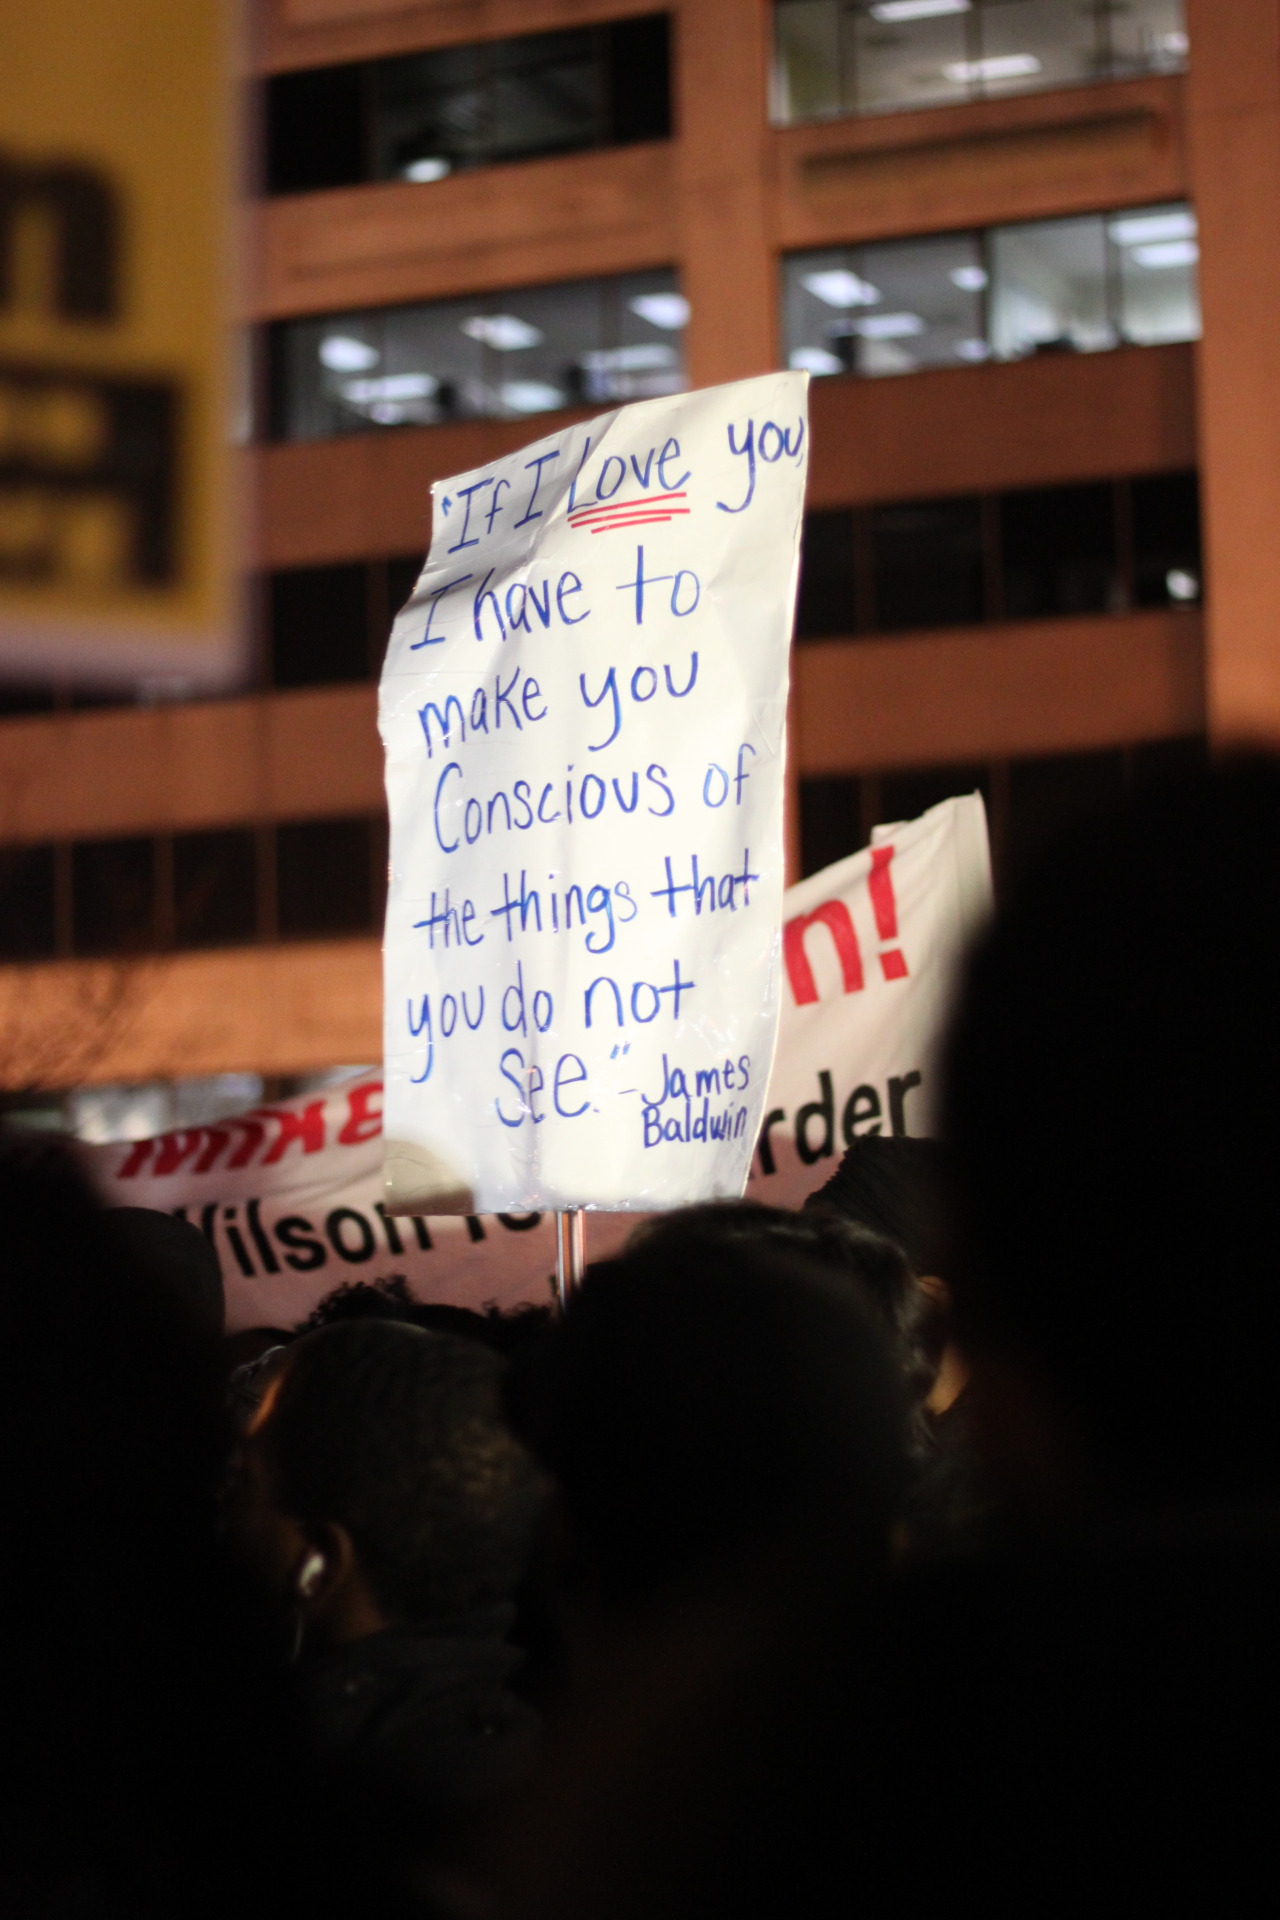 "If I Love you,
I have to
make you
Conscious of
the things that
you do not
See." - James
Baldwin
n!
rder
ilson